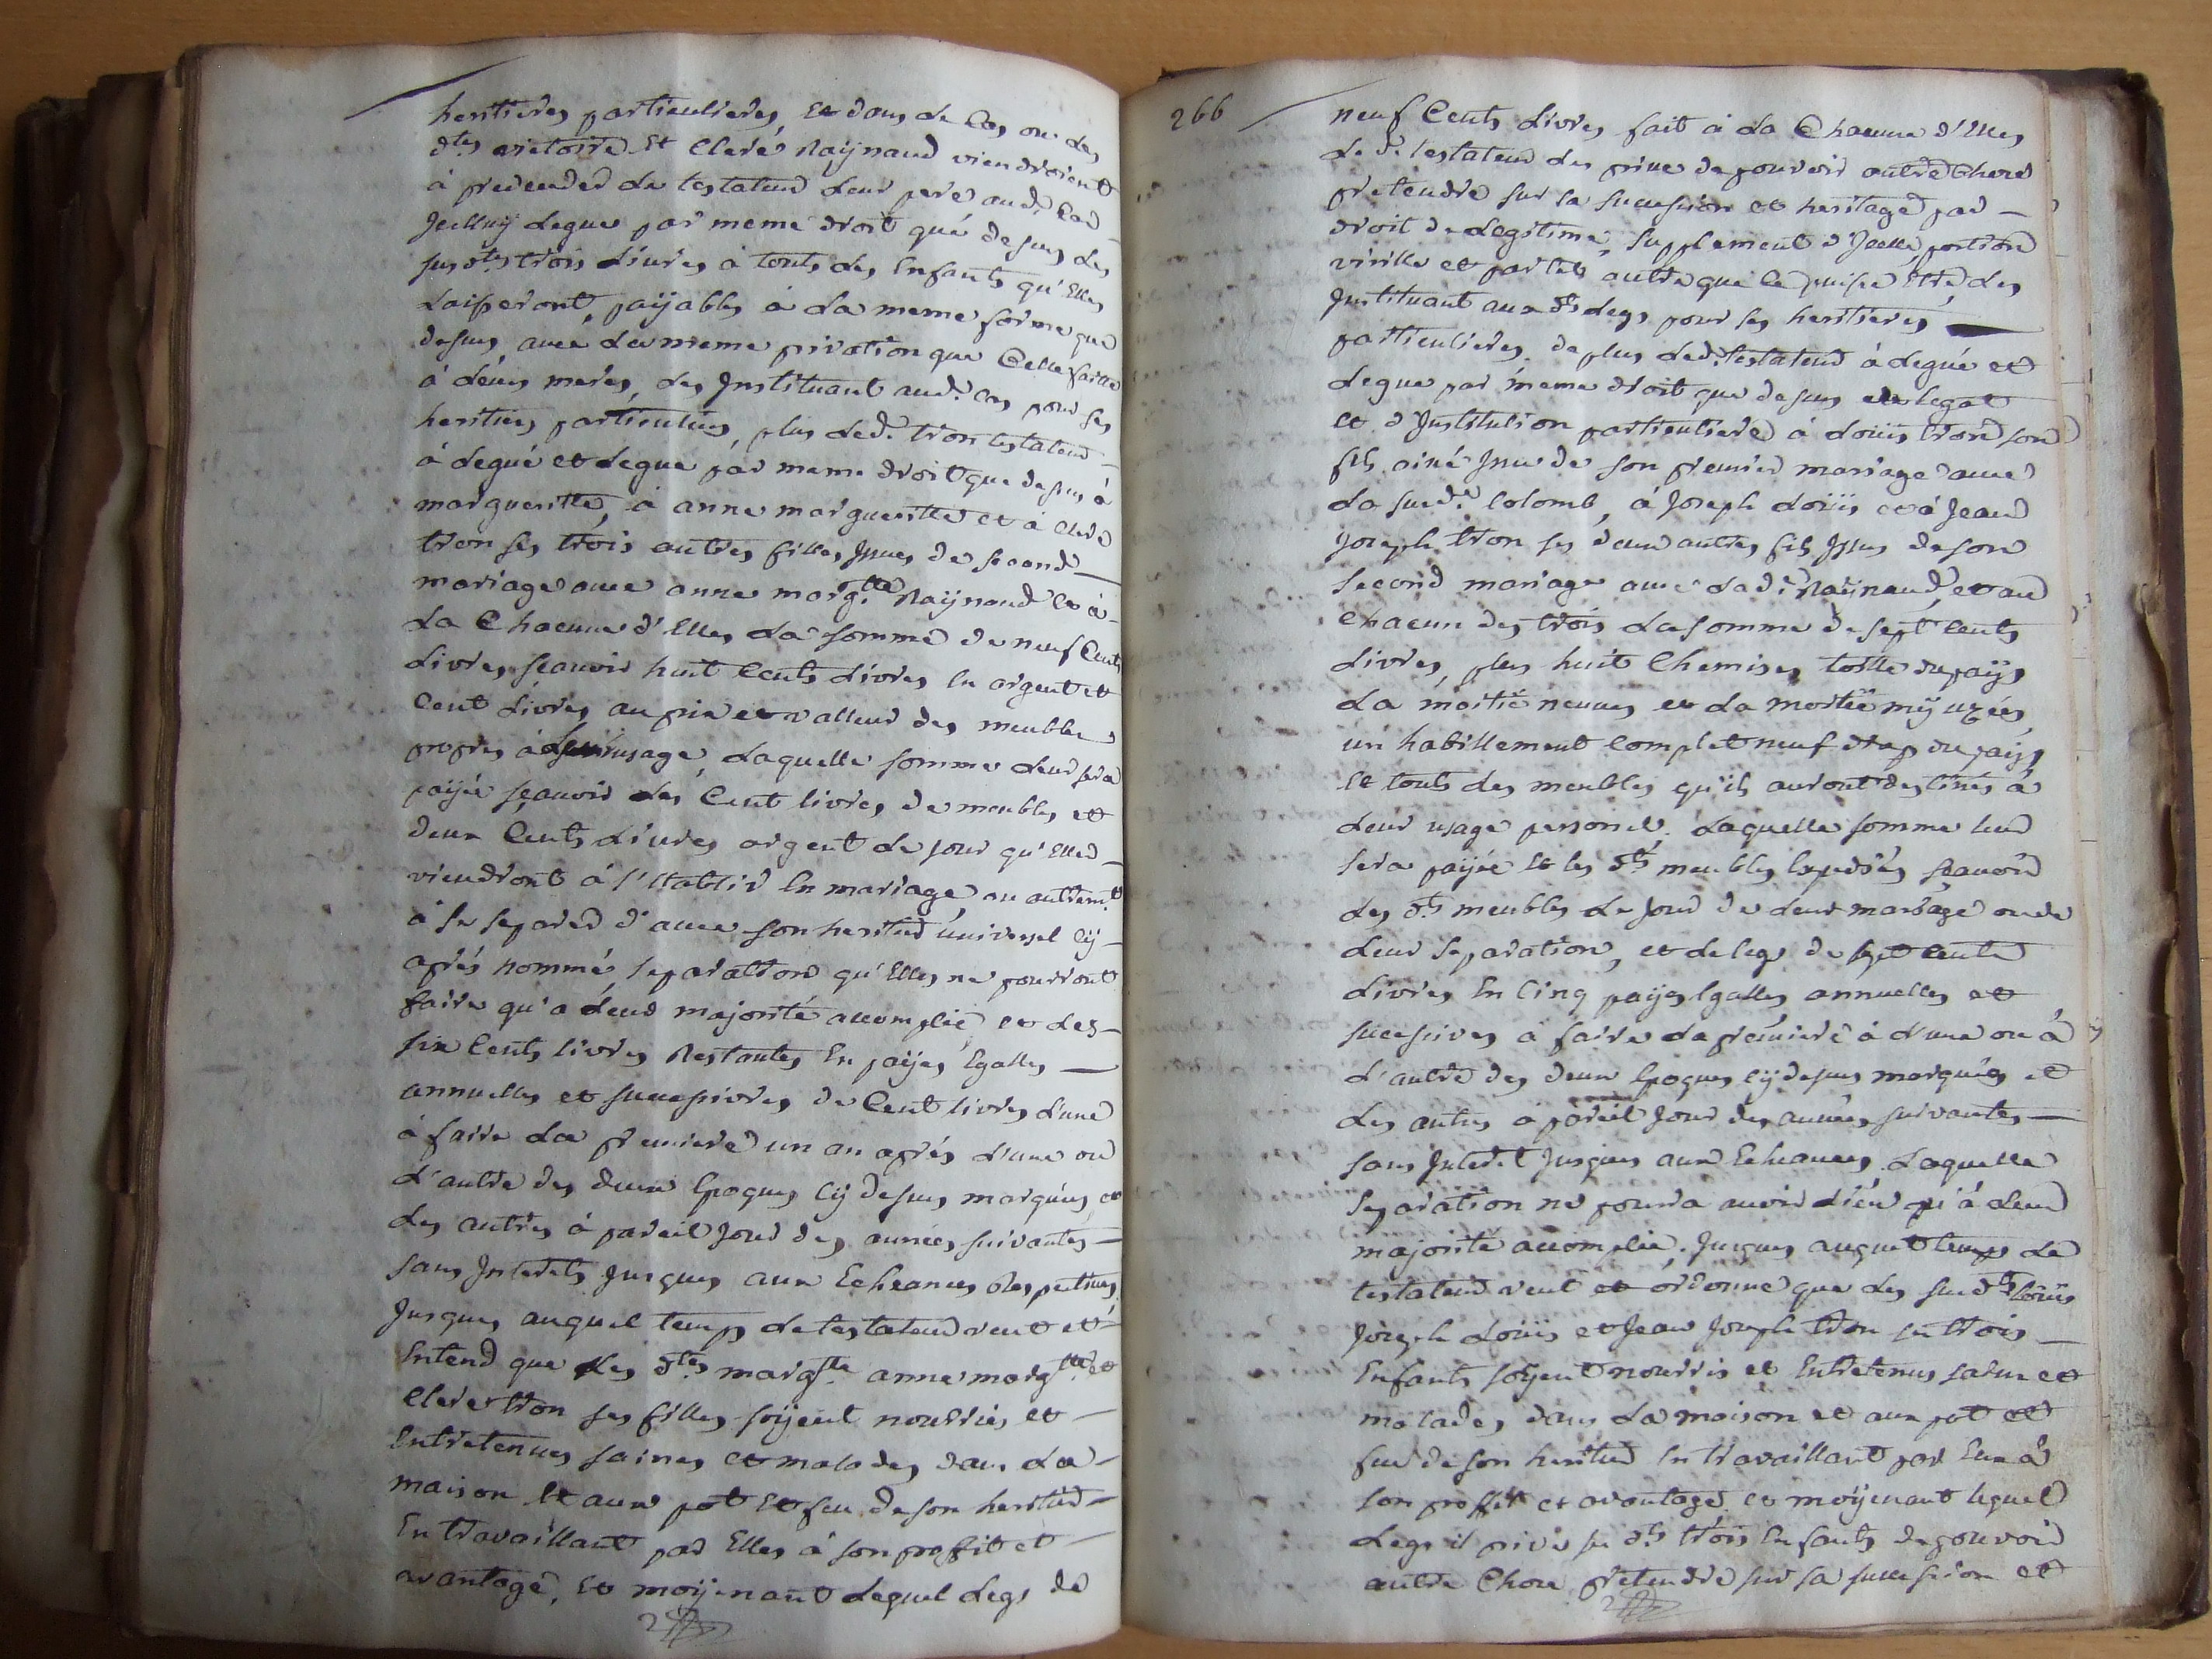 heritieres particulieres, Et dans le Cas ou les
dtes victoire Et Clere Raÿnaud viendroient
à predeceder le testateur leur pere aud. Cas
Jcelluÿ legue par meme droit que dessus les
susdtes trois livres à touts les Enfants qu'Elles
Laisseront, païjables à la meme forme que
dessus avec la meme privation que Celle faitte
à leurs meres, les Jnstituant aud. cas pour ses
heritiers particuliers, plus led. tron testateur
à legué et legue par meme droit que dessus à
margueritte, à anne margueritte et à Clere
tron ses trois autres filles Jssues de second
mariage avec anne margtte Raÿnaud Et à
La Chacune d'Elles La somme de neuf Cents
Livres, sçavoir huit Cents Livres En argent et
Cent Livres au prix et valleur des meubles
propres à Leur usage, Laquelle somme leur sera
païjée sçavoir les Cent livres de meubles et
deux Cents Livres argent le jour qu'Elles
viendront à s'Etablir En mariage ou autremt
à se separer d'avec son heritier universel cÿ
aprés nommé, separation qu'Elles ne pourront
faire qu'a leur majorité accomplie, et les
six Cents livres Restantes En païjes Egalles
annuelles et successives de Cent livres L'une
à faire La premiere un an aprés L'une ou
L'autre des deux Epoques cÿ dessus marquées, et
Les autres à pareil Jour des années suivantes
sans Jnterets Jusques aux Echeances Respectives
Jusques auquel temps le testateur veut et
Entend que les dtes margtte anne margtte et
Clere tron ses filles soÿent nourries et
Entretenues saines et malades dans La
maison Et aux pot Et feu de son heritier
En travaillant par Elles à son proffit et
avantage, Et moÿenant Lequel Legs de
266
neuf Cents Livres fait à La Chacune d'Elles
Le d. testateur les prive de pouvoir autre Chose
pretendre sur sa succession et heritage par
droit de Legitime, supplement d'Jcelle, portion
virille et par tels autre que ce puisse Etre, les
Jnstituant aux dts legs pour ses heritieres
particulieres. de plus led. testateur à legué et
Legue par meme droit que dessus de legat
et d'Jnstitution particuliere à Loüis tron son
fils ainé Jssu de son premier mariage avec
La susd. Colomb, à Joseph Loüis et à Jean
Joseph tron ses deux autres fils Jssus de son
second mariage avec Lad. Raÿnaud, et au
Chacun des trois La somme de sept Cents
Livres, plus huit Chemises toille du païjs
La moitié neuves et La moitié mÿ uzées,
un habillement Complet neuf drap du païjs,
Et touts les meubles qu'ils auront destinés à
leur usage personel. Laquelle somme leur
sera païjée Et les dts meubles Expediés sçavoir
Les dts meubles Le Jour de leur mariage ou de
Leur separation, et le legs de sept Cents
Livres En Cinq païjes Egalles annuelles et
successives à faire La premiere à L'une ou à
L'autre des deux Epoques cÿ dessus marquées et
Les autres à pareil Jour des années suivantes
sans Jnteret Jusques aux Echeances. Laquelle
separation ne pourra avoir Lieu qu'à leur
majorité accomplie. Jusques auquel temps Le
testateur veut et ordonne que les susdts Loüis
Joseph Loüis et Jean Joseph tron ses trois
Enfants soÿent nourris et Entretenus sains et
malades, dans La maison et aux pot et
feu de son heritier En travaillant par Eux à
son proffit et avantage et moÿenant lequel
Legs il prive ses dts trois Enfants de pouvoir
autre Chose pretendre sur sa succession et